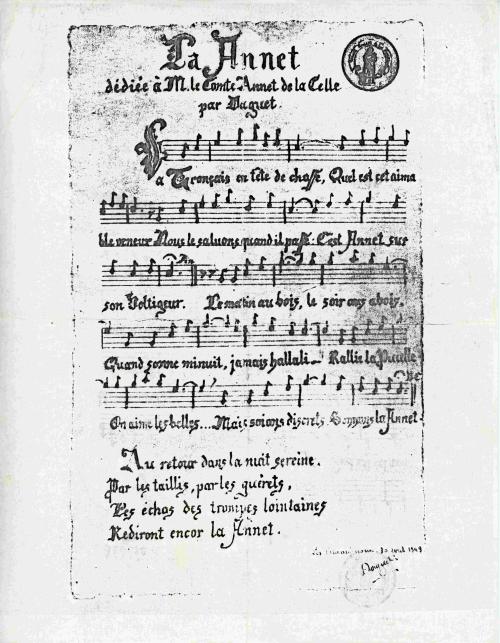 La Annet
dédiée à M. le Comte Annet de la Celle
par Daguet.
a Tronçais en tête de chasse, Quel est cet aima
ble veneur Nous le saluons quand il passe: C'est Annet sur
son Voltigeur. Le matin au bois, le soir aux abois.
Quand sonne minuit, jamais hallali... Rallie la
On aime les belles... Mais soions discrets Sonnons la Annet.
Au retour dans la nuit sereine.
Par les taillis, par les guérets,
Les échos des trompes lointaines
Rediront encor la Annet.
Daguet